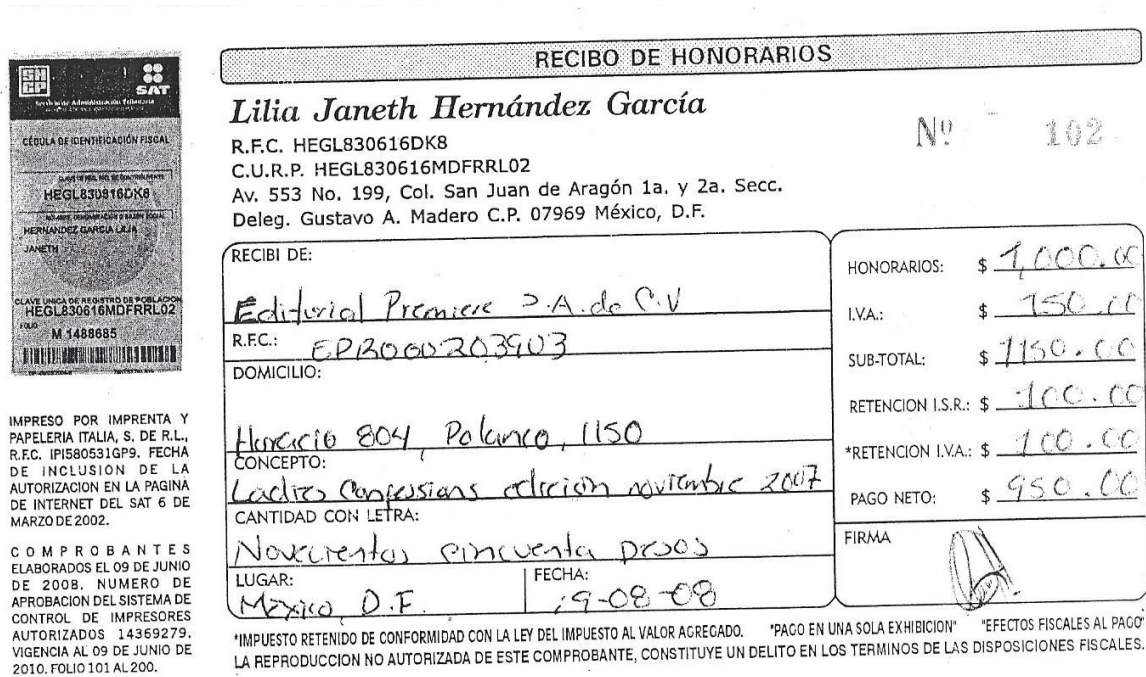 RECIBO DE HONORARIOS
SHCP
SAT
Servicio de Administración Tributaria
CÉDULA DE IDENTIFICACIÓN FISCAL
HEGL830616DK8
HERNANDEZ GARCIA LILIA
JANETH
CLAVE UNICA DE REGISTRO DE POBLACION
HEGL830616MDFRRL02
FOLIO
M 1488685
IMPRESO POR IMPRENTA Y
PAPELERIA ITALIA, S. DE R.L.,
R.F.C. IPI580531GP9. FECHA
DE INCLUSION DE LA
AUTORIZACION EN LA PAGINA
DE INTERNET DEL SAT 6 DE
MARZO DE 2002.
COMPROBANTES
ELABORADOS EL 09 DE JUNIO
DE 2008. NUMERO DE
APROBACION DEL SISTEMA DE
CONTROL DE IMPRESORES
AUTORIZADOS 14369279.
VIGENCIA AL 09 DE JUNIO DE
2010. FOLIO 101 AL 200.
Lilia Janeth Hernández García
Nº 102
R.F.C. HEGL830616DK8
C.U.R.P. HEGL830616MDFRRL02
Av. 553 No. 199, Col. San Juan de Aragón 1a. y 2a. Secc.
Deleg. Gustavo A. Madero C.P. 07969 México, D.F.
RECIBI DE:
Editorial Premiere S.A. de C.V
R.F.C.:
DOMICILIO:
Horacio 804, Polanco, 1150
CONCEPTO:
Ladies Confessions edición noviembre 2007
CANTIDAD CON LETRA:
Novecientos cincuenta pesos
LUGAR:
México, D.F.
FECHA:
19-08-08
HONORARIOS: $ 1,000.00
I.V.A.: $ 150.00
SUB-TOTAL: $ 1150.00
RETENCION I.S.R.: $ 100.00
*RETENCION I.V.A.: $ 100.00
PAGO NETO: $ 950.00
FIRMA
*IMPUESTO RETENIDO DE CONFORMIDAD CON LA LEY DEL IMPUESTO AL VALOR AGREGADO. "PAGO EN UNA SOLA EXHIBICION" "EFECTOS FISCALES AL PAGO"
LA REPRODUCCION NO AUTORIZADA DE ESTE COMPROBANTE, CONSTITUYE UN DELITO EN LOS TERMINOS DE LAS DISPOSICIONES FISCALES.